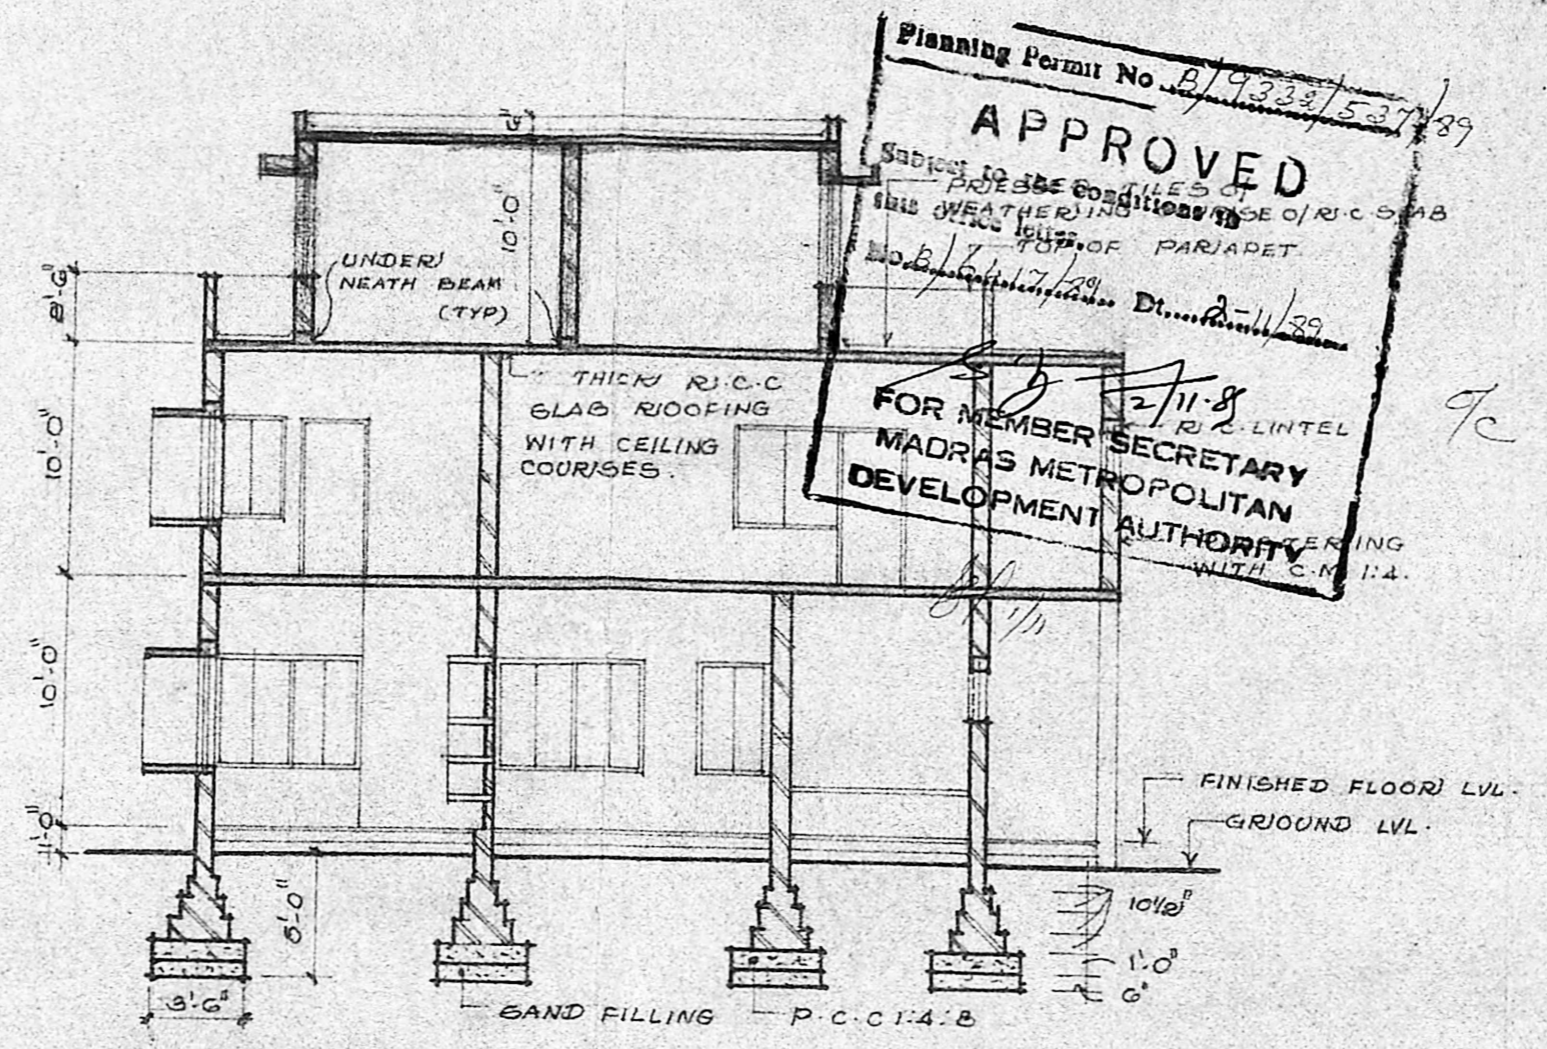 Planning Permit No B/9332/537/89
APPROVED
Subject to the conditions in
this office letter.
No. B/ /89 Dt. 2-11/89
2/11.8
FOR MEMBER SECRETARY
MADRAS METROPOLITAN
DEVELOPMENT AUTHORITY
TILES OF
WEATHERING O/R.C SLAB
TOP OF PARAPET.
R.C. LINTEL
O/C
WITH C.M 1:4.
6"
10'-0"
UNDER
NEATH BEAM
(TYP)
2'-6"
THICK R.C.C
SLAB ROOFING
WITH CEILING
COURSES.
10'-0"
10'-0"
1'-0"
FINISHED FLOOR LVL.
GROUND LVL.
5'-0"
3'-6"
10½"
1'-0"
6"
SAND FILLING
P.C.C 1:4:8